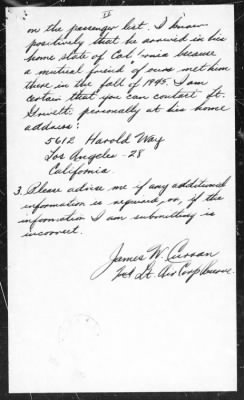 II
on the passenger list. I know
positively that he arrived in his
home state of California because
a mutual friend of ours met him
there in the fall of 1945. I am
certain that you can contact Lt.
personally at his home
address:
5612 Harold Way
Los Angeles - 28
California.
3. Please advise me if any additional
information is required, or, if the
information I am submitting is
incorrect.
James W. Curran
Lt. Air Corp Reserve